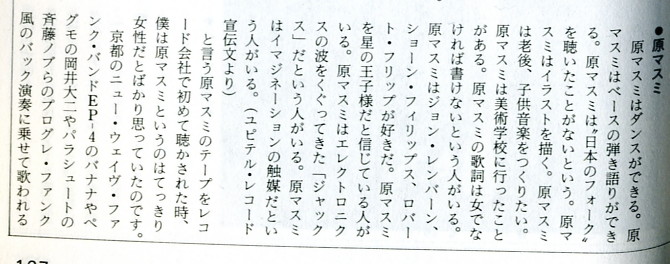 ●原マスミ
原マスミはダンスができる。原
マスミはベースの弾き語りができ
る。原マスミは〝日本のフォーク〟
を聴いたことがないという。原マ
スミはイラストを描く。原マスミ
は老後、子供音楽をつくりたい。
原マスミは美術学校に行ったこと
がある。原マスミの歌詞は女でな
ければ書けないという人がいる。
原マスミはジョン・レンバーン、
ショーン・フィリップス、ロバー
ト・フリップが好きだ。原マスミ
を星の王子様だと信じている人が
いる。原マスミはエレクトロニク
スの波をくぐってきた「ジャック
ス」だという人がいる。原マスミ
はイマジネーションの触媒だとい
う人がいる。（ユピテル・レコード
宣伝文より）
と言う原マスミのテープをレコ
ード会社で初めて聴かされた時、
僕は原マスミというのはてっきり
女性だとばかり思っていたのです。
京都のニュー・ウェイヴ・ファ
ンク・バンドEP-4のバナナやペ
グモの岡井大二やパラシュートの
斉藤ノブらのプログレ・ファンク
風のバック演奏に乗せて歌われる